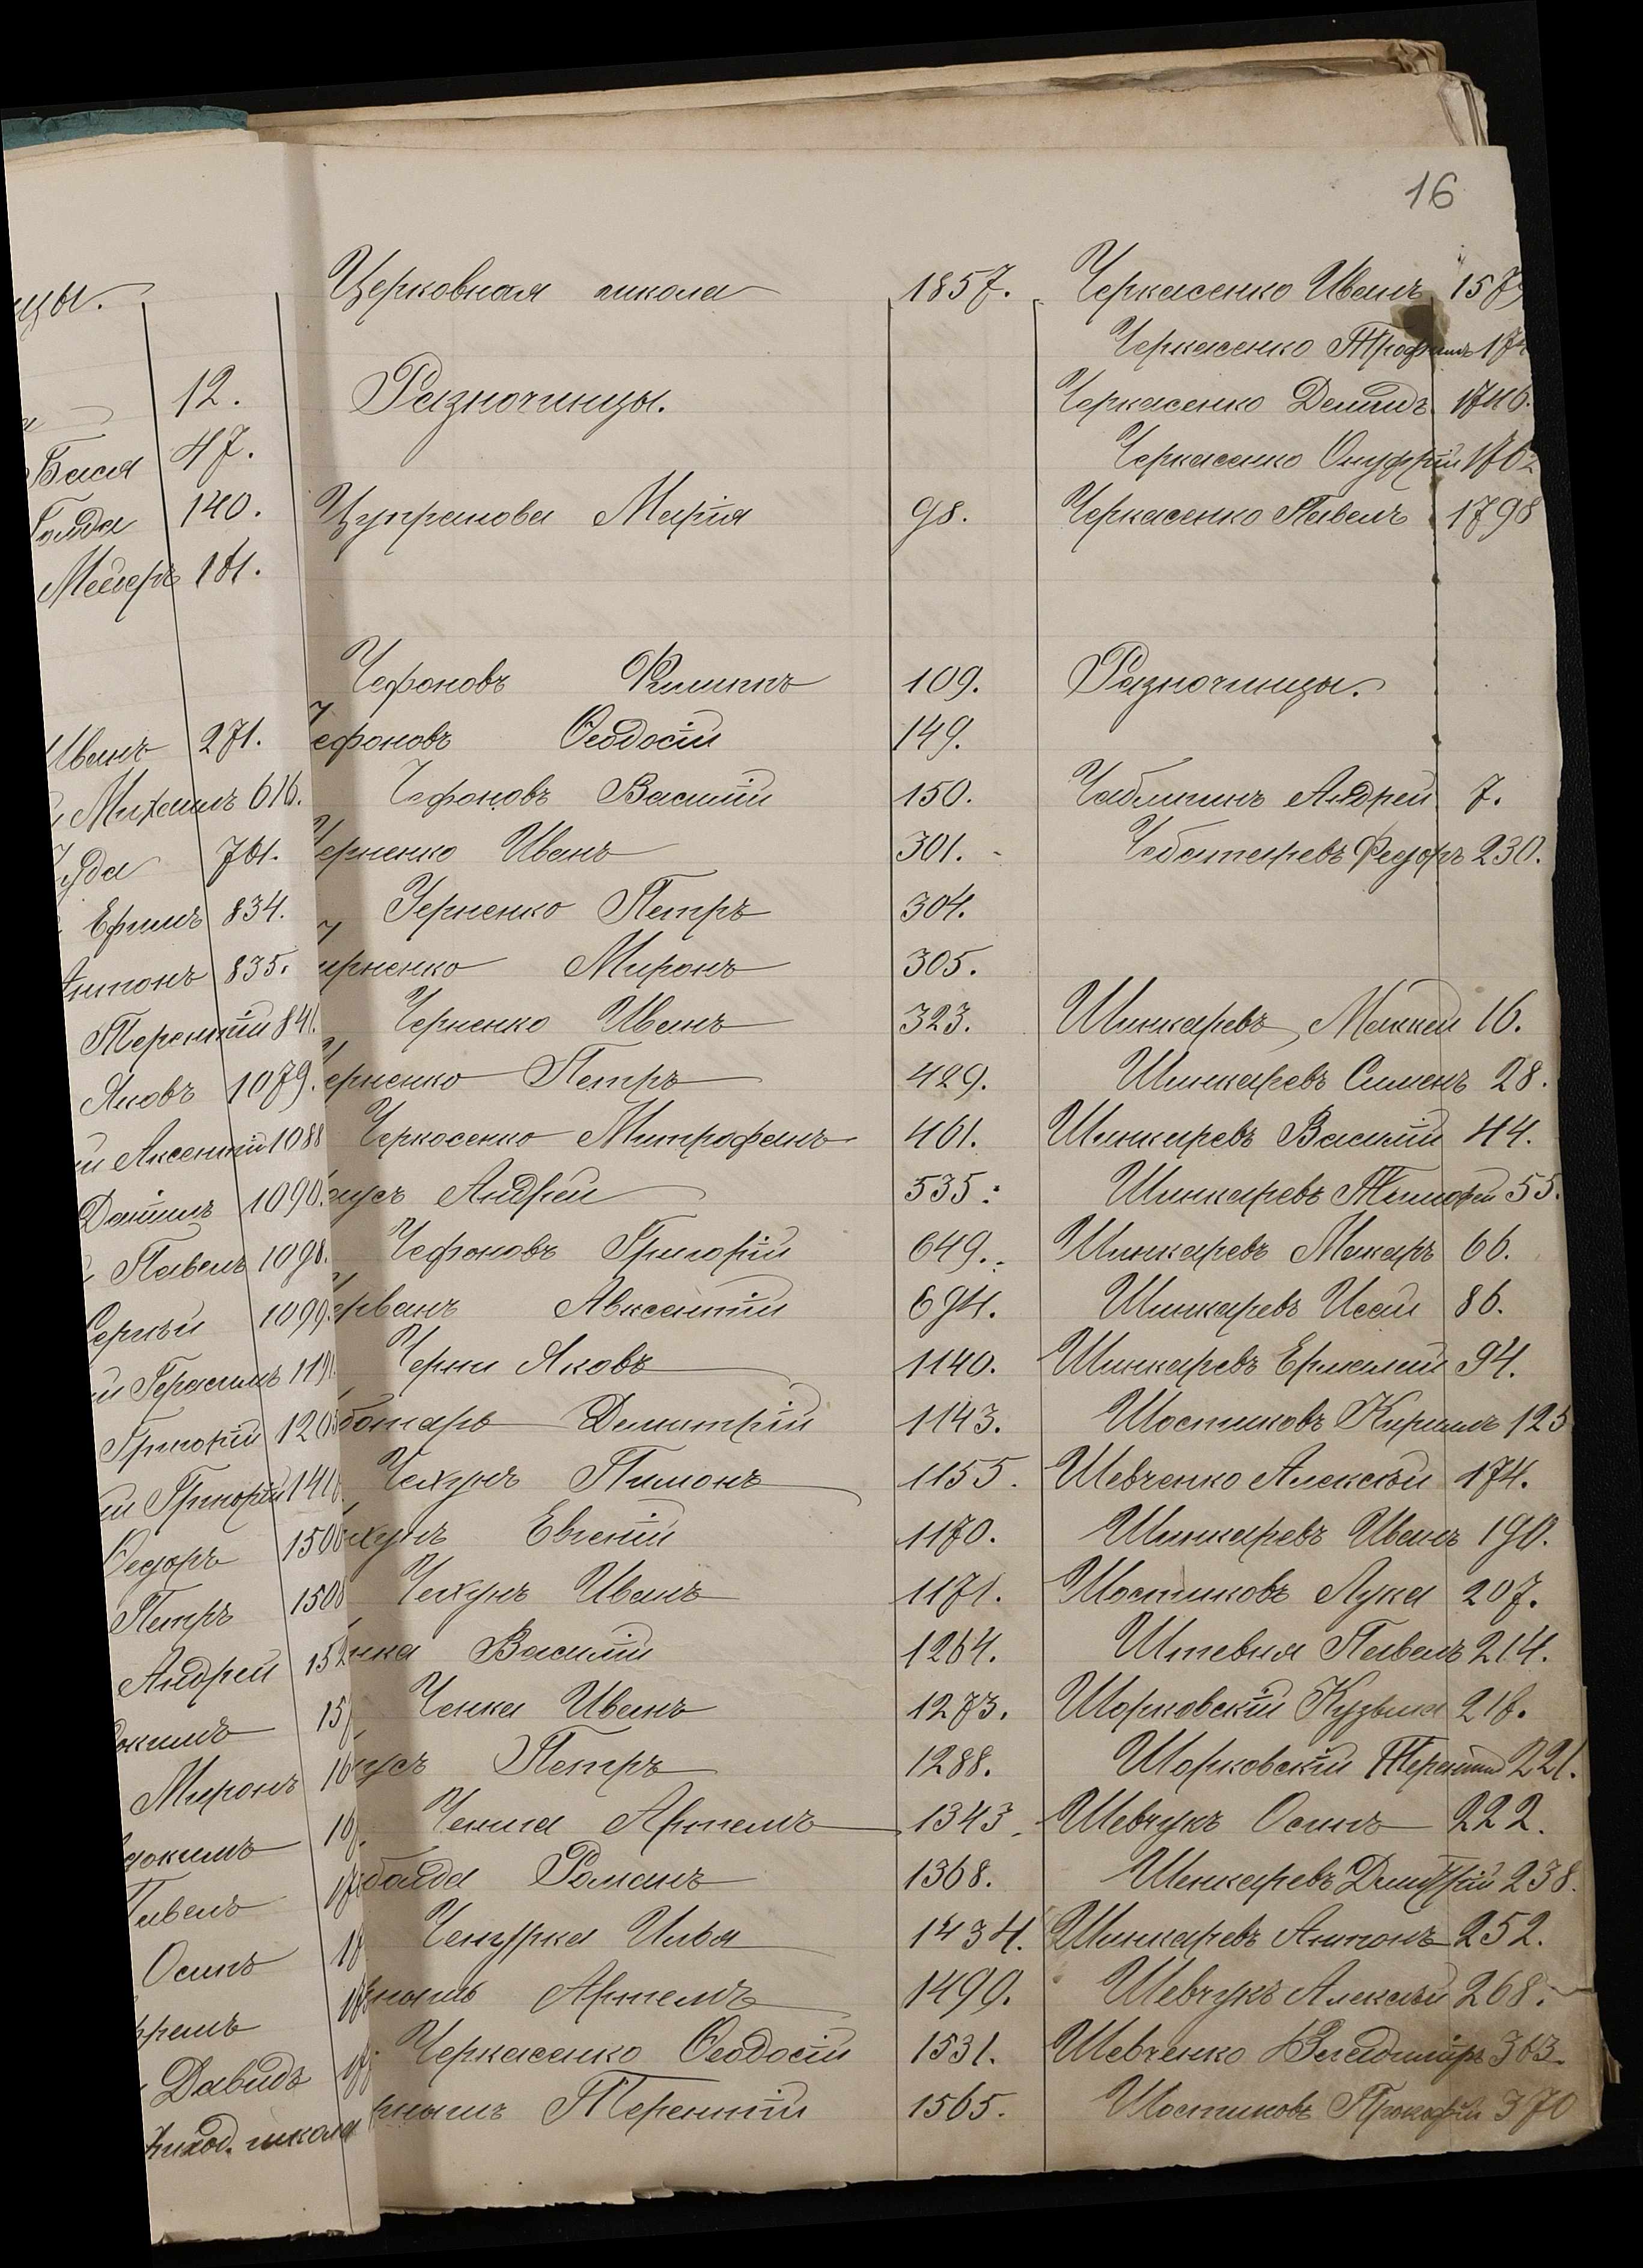 16
цы.
12.
Бася 47.
Голда 140.
Мейеръ 181.
Иванъ 271.
Михаилъ 616.
уда 781.
Ефимъ 834.
Антонъ 835.
Терентій 841.
Яковъ 1079.
й Аксентій 1088
Даніилъ 1090.
Павелъ 1098.
Сергѣй 1099.
й Герасимъ 119
Григорій 120
й Григорій 141
Ѳедоръ 150
Петръ 150
Андрей 152
окимъ 15
Миронъ 16
докимъ 16
Павелъ 17
Осипъ 18
фремъ
Давидъ
приход. школа
Церковная школа 1857.
Разночинцы.
Цупранова Марія 98.
Чефоновъ Филиппъ 109.
Чефоновъ Ѳеодосій 149.
Чефоновъ Василій 150.
Черненко Иванъ 301.
Черненко Петръ 304.
Черненко Миронъ 305.
Черненко Иванъ 323.
Черненко Петръ 429.
Черкосенко Митрофанъ 461.
усъ Андрей 535.
Чефоновъ Григорій 649.
Черванъ Авксентій 694.
Черни Яковъ 1140.
ботарь Димитрій 1143.
Чехунъ Пимонъ 1155.
хунъ Евгеній 1170.
Чехунъ Иванъ 1171.
нка Василій 1264.
Ченка Иванъ 1273.
усъ Петръ 1288.
Артемъ 1343.
балда Романъ 1368.
Чепурка Илья 1434.
Артемъ 1490.
Черкасенко Ѳеодосій 1531.
Терентій 1565.
Черкасенко Иванъ 157
Черкасенко Трофимъ 17
Черкасенко Демидъ 1746.
Черкасенко Онуфрій 176
Черкасенко Павелъ 1798
Разночинцы.
Чаблыгинъ Андрей 7.
Чеботаревъ Федоръ 230.
Шинкаревъ Моккей 16.
Шинкаревъ Симонъ 28.
Шинкаревъ Василій 44.
Шинкаревъ Тимофей 55.
Шинкаревъ Макаръ 66.
Шинкаревъ Исай 86.
Шинкаревъ Ермолай 94.
Шостиковъ Кирилъ 125
Шевченко Алексѣй 174.
Шинкаревъ Иванъ 190.
Шостиковъ Лука 207.
Штевня Павелъ 214.
Шорковскій Кузьма 218.
Шорковскій Терентій 221.
Шевчукъ Осипъ 222.
Шенкаревъ Дмитрій 238.
Шинкаревъ Антонъ 252.
Шевчукъ Алексѣй 268.
Шевченко Владиміръ 363.
Шостиковъ Прокофій 370